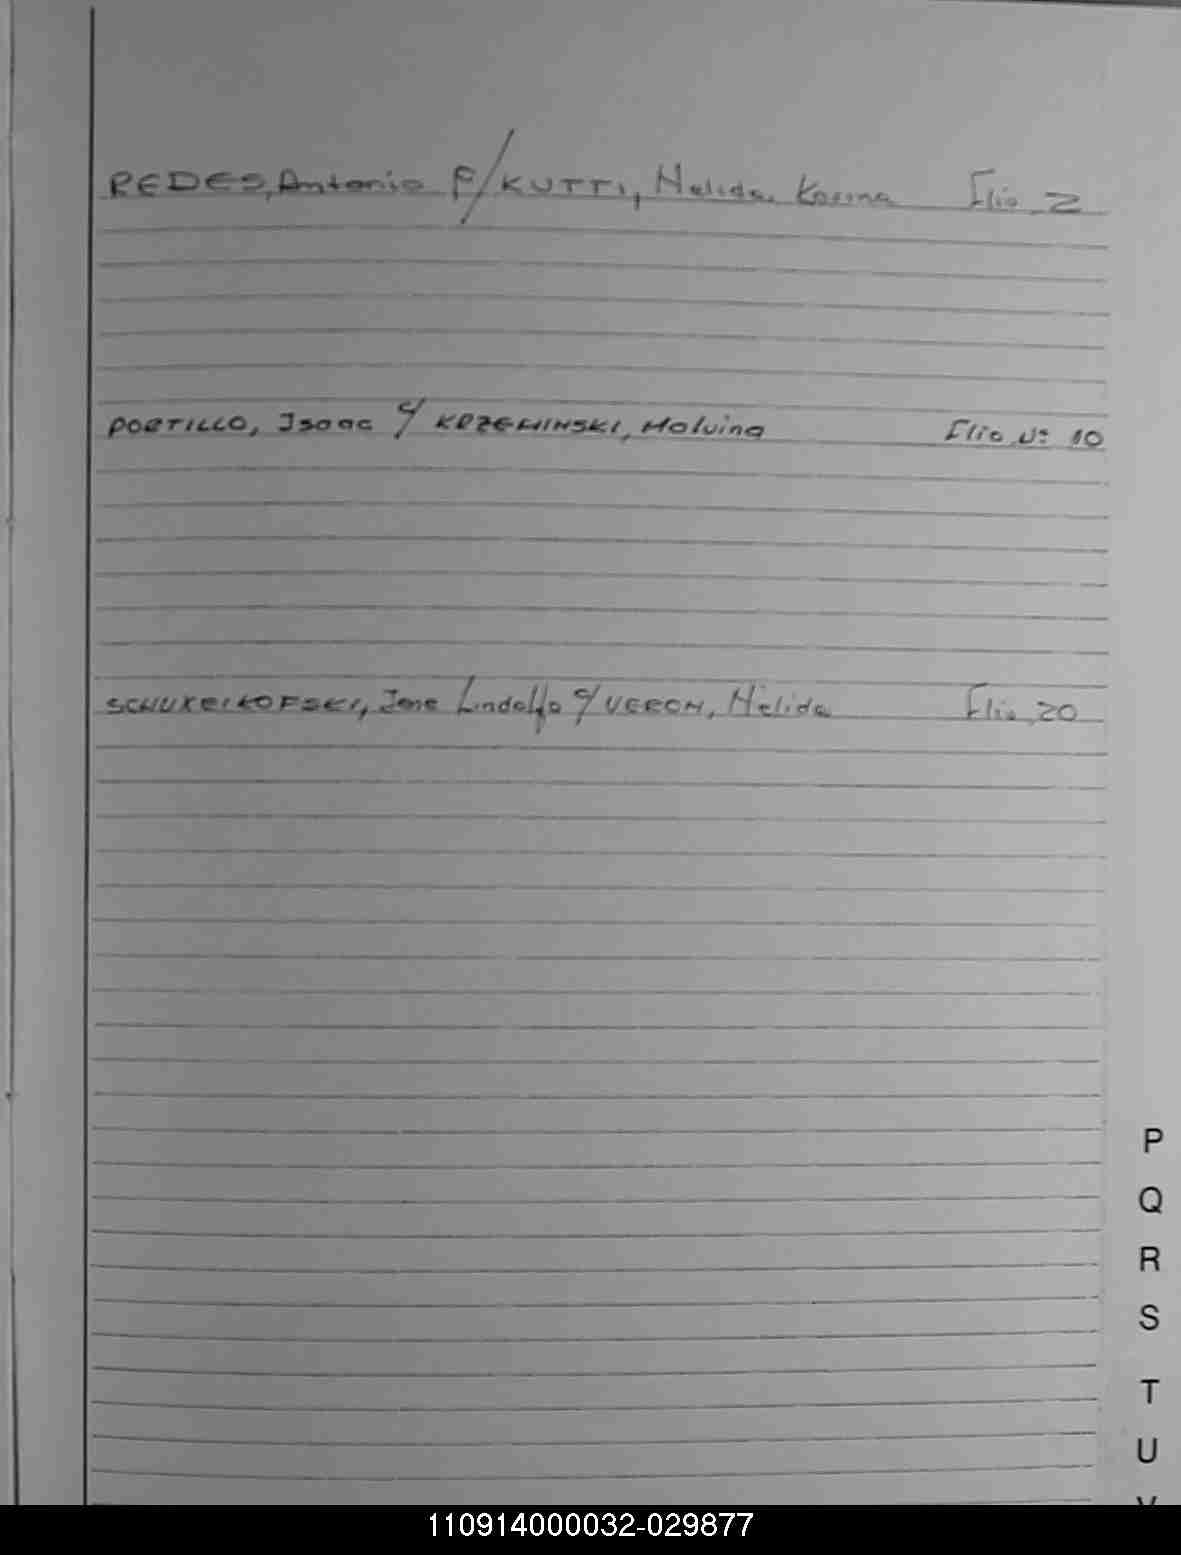 REDES, Antonio F/KUTTI, Nelida Karina Flio 2
PORTILLO, Isaac c/ KRZEMINSKI, Malvina Flio Nº 10
Lindolfo c/ VERON, Nélida Flio 20
P
Q
R
S
T
U
V
110914000032-029877